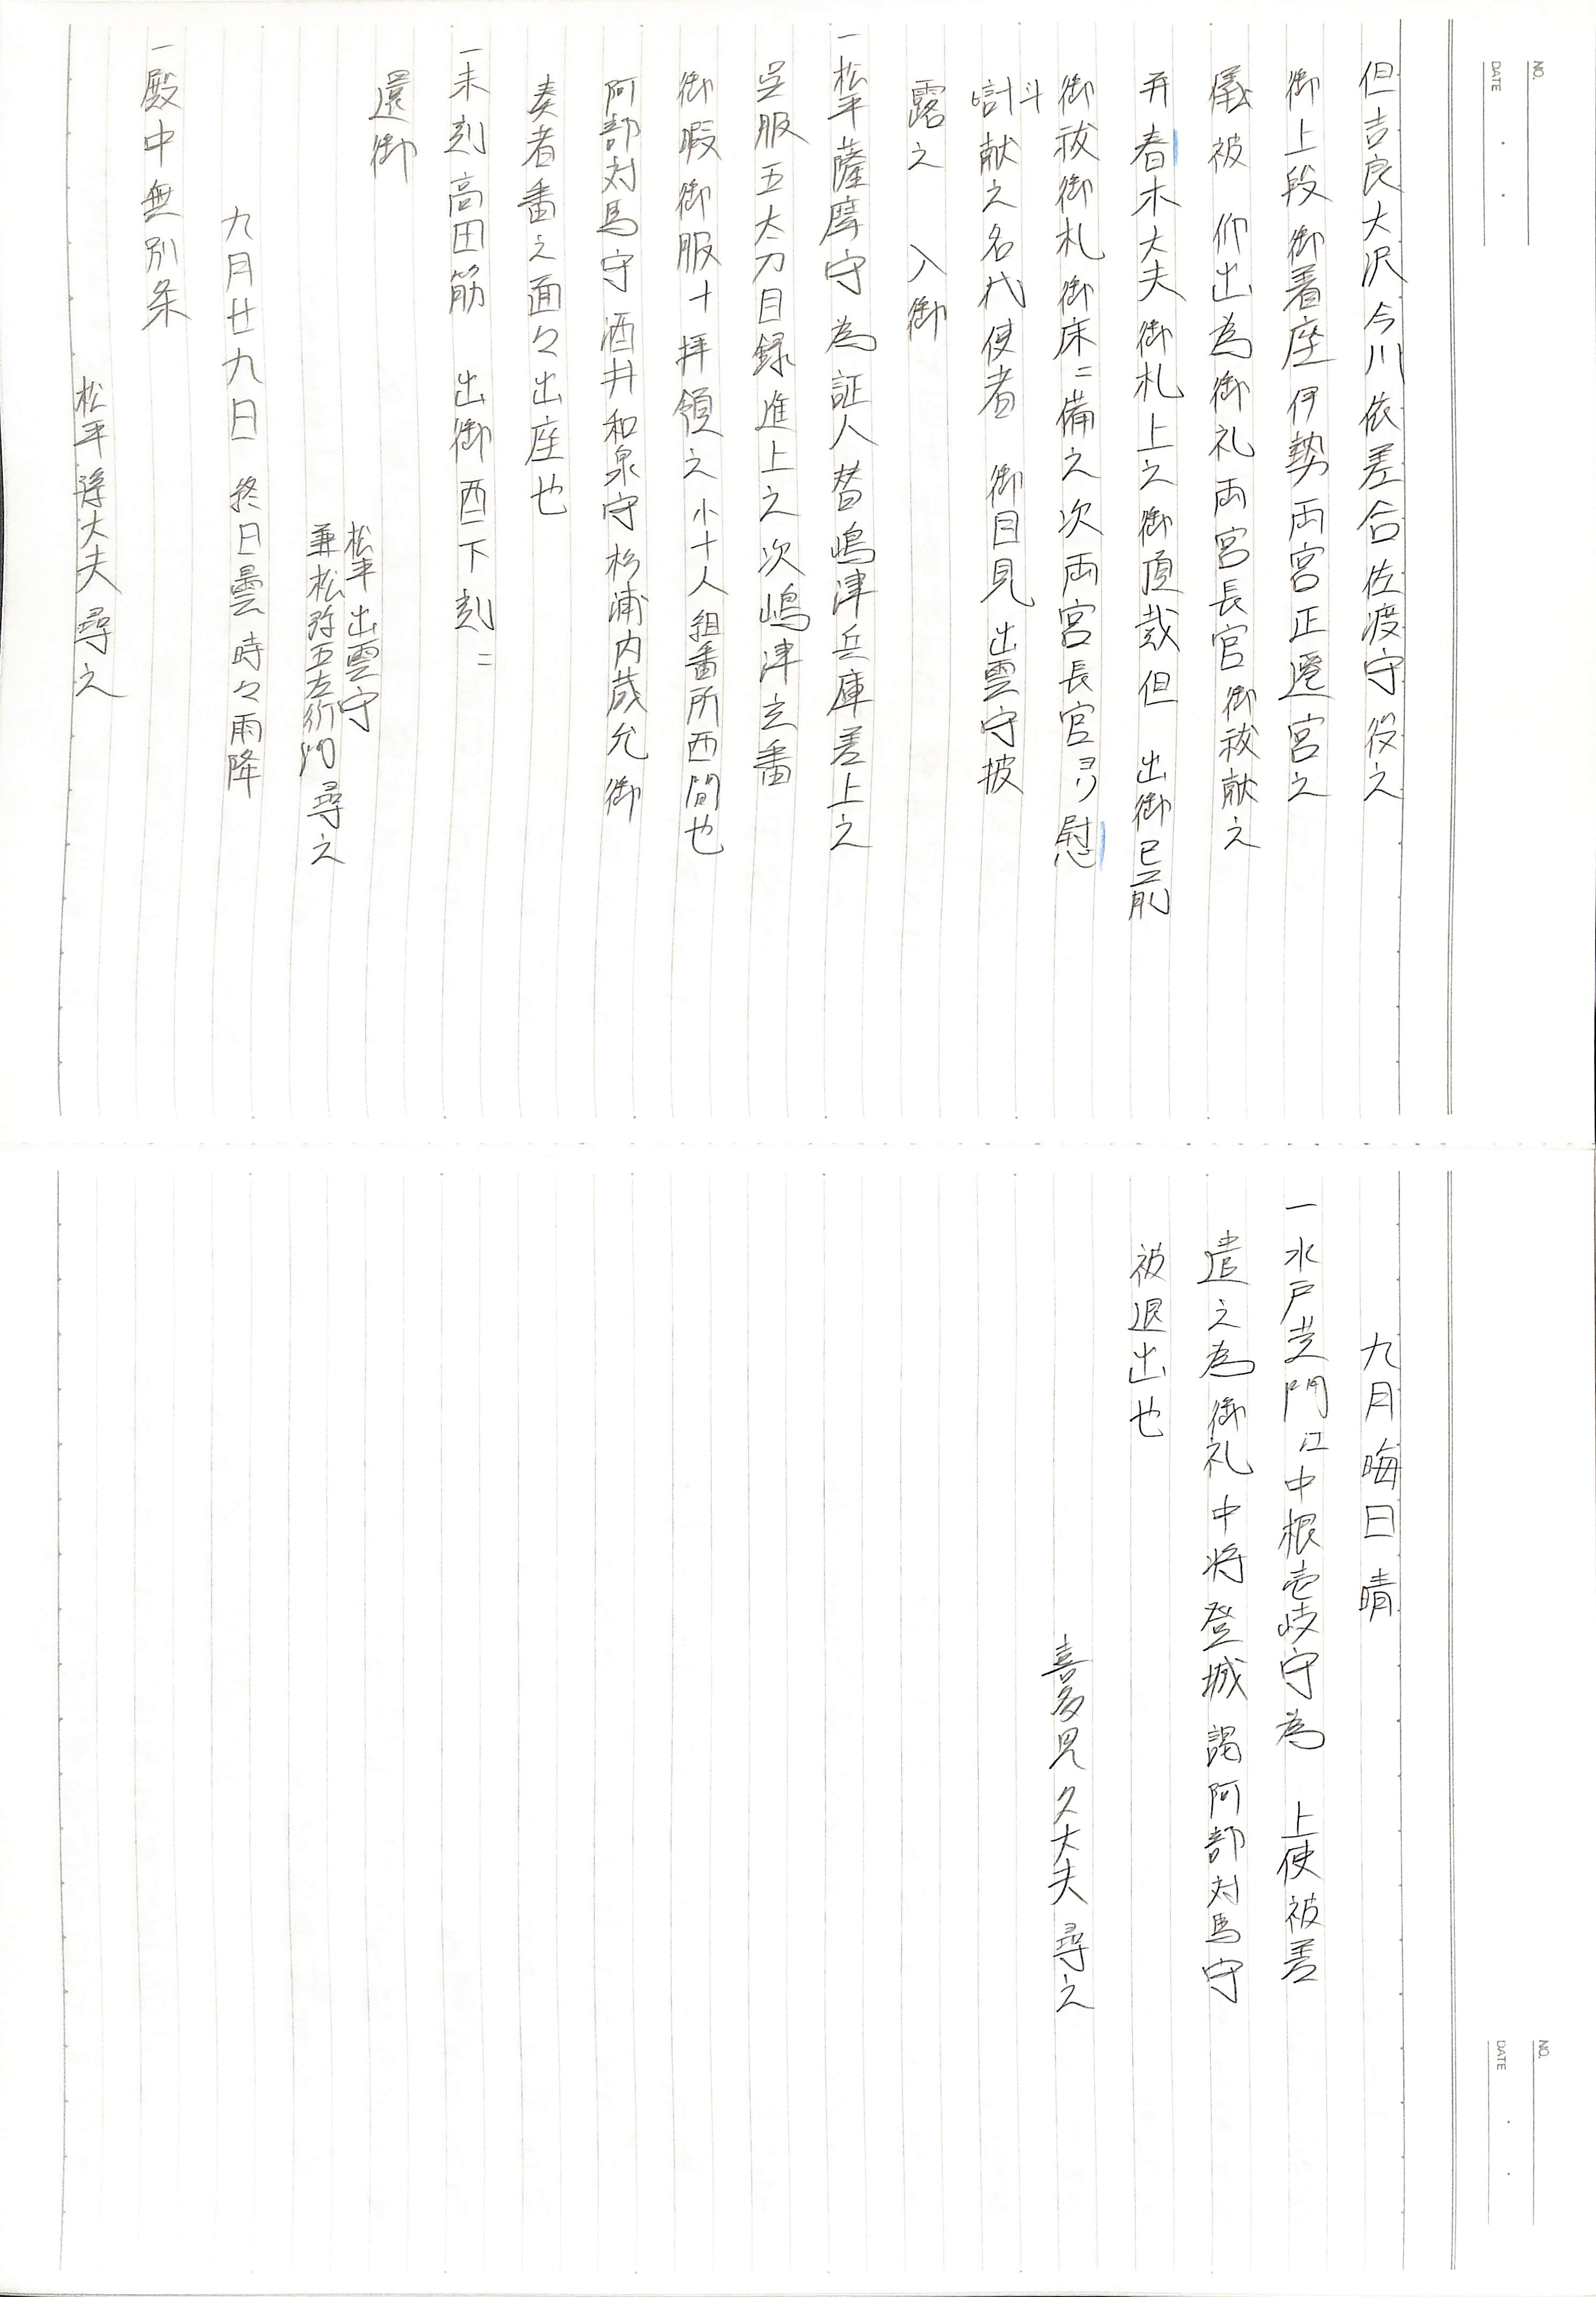 NO.
DATE
但吉良大沢今川依差合佐渡守役之
御上段御着座伊勢両宮正遷宮之
儀被　仰出為御礼両宮長官御祓献之
并春木大夫御札上之御頂戴但　出御已前
御祓御札御床ニ備之次両宮長官ゟ慰
斗
献之名代使者　御目見出雲守披
露之　入御
一松平薩摩守為証人替嶋津兵庫差上之
呉服五太刀目録進上之次嶋津立番
御暇御服十拝領之小十人組番所西間也
阿部対馬守酒井和泉守杉浦内蔵允御
奏者番之面々出座也
一未刻高田筋　出御酉下刻ニ
還御
松平出雲守
兼松弥五左衛門尋之
九月廿九日　終日曇時々雨降
一殿中無別条
松平　大夫尋之
NO.
DATE
九月晦日晴
一水戸　門江中根壱岐守為　上使被差
遣之為御礼中将登城謁阿部対馬守
被退出也
喜多見久大夫尋之